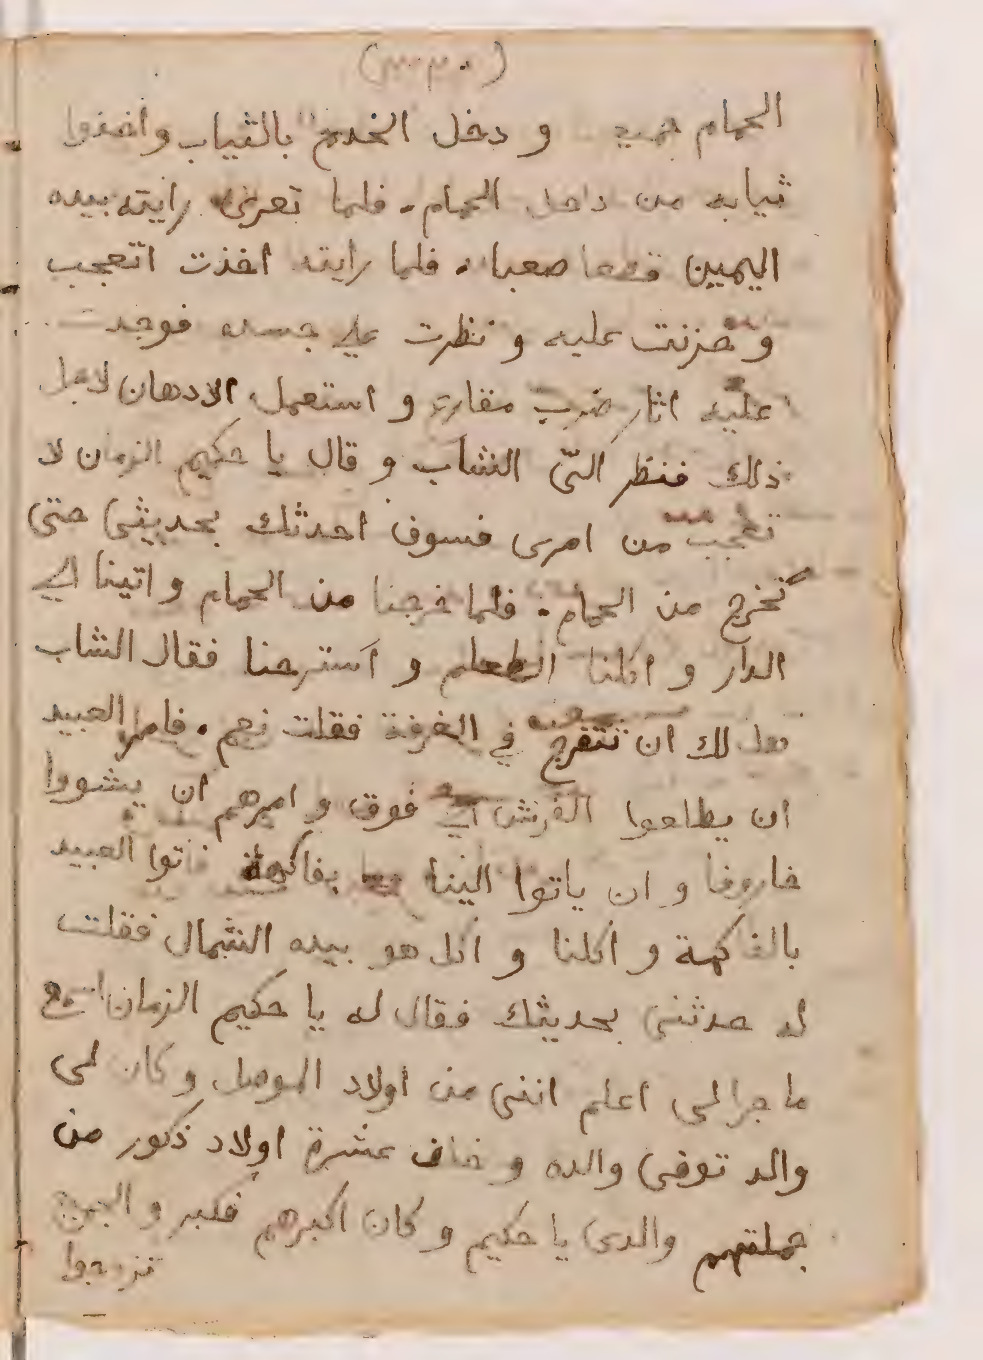 الحمام و دخل الخدم بالثياب واخذوا
ثيابه من داخل الحمام. فلما تعرى رايته بيده
اليمين قطعا صعبا. فلما رايته اخذت اتعجب
و حزنت عليه و نظرت علي جسده فوجدت
عليه اثار ضرب مقارع و استعمل الادهان لاجل
ذلك فنظر اليّ الشاب و قال يا حكيم الزمان لا
تعجب من امرى فسوف احدثك بحديثى حتى
نخرج من الحمام. فلما خرجنا من الحمام و اتينا الي
الدار و اكلنا الطعام و استرحنا فقال الشاب
هل لك ان نتفرج في الغرفة فقلت نعم. فامر العبيد
ان يطلعوا الفرش الي فوق و امرهم ان يشووا
خاروفا و ان ياتوا الينا بفاكهة فاتوا العبيد
بالفاكهة و اكلنا و اكل هو بيده الشمال فقلت
له حدثنى بحديثك فقال له يا حكيم الزمان اسمع
ما جرا لى اعلم اننى من اولاد الموصل و كان لى
والد توفى والده و خلف عشرة اولاد ذكور من
جملتهم والدى يا حكيم و كان اكبرهم فكبر و الجميع
تزوجوا